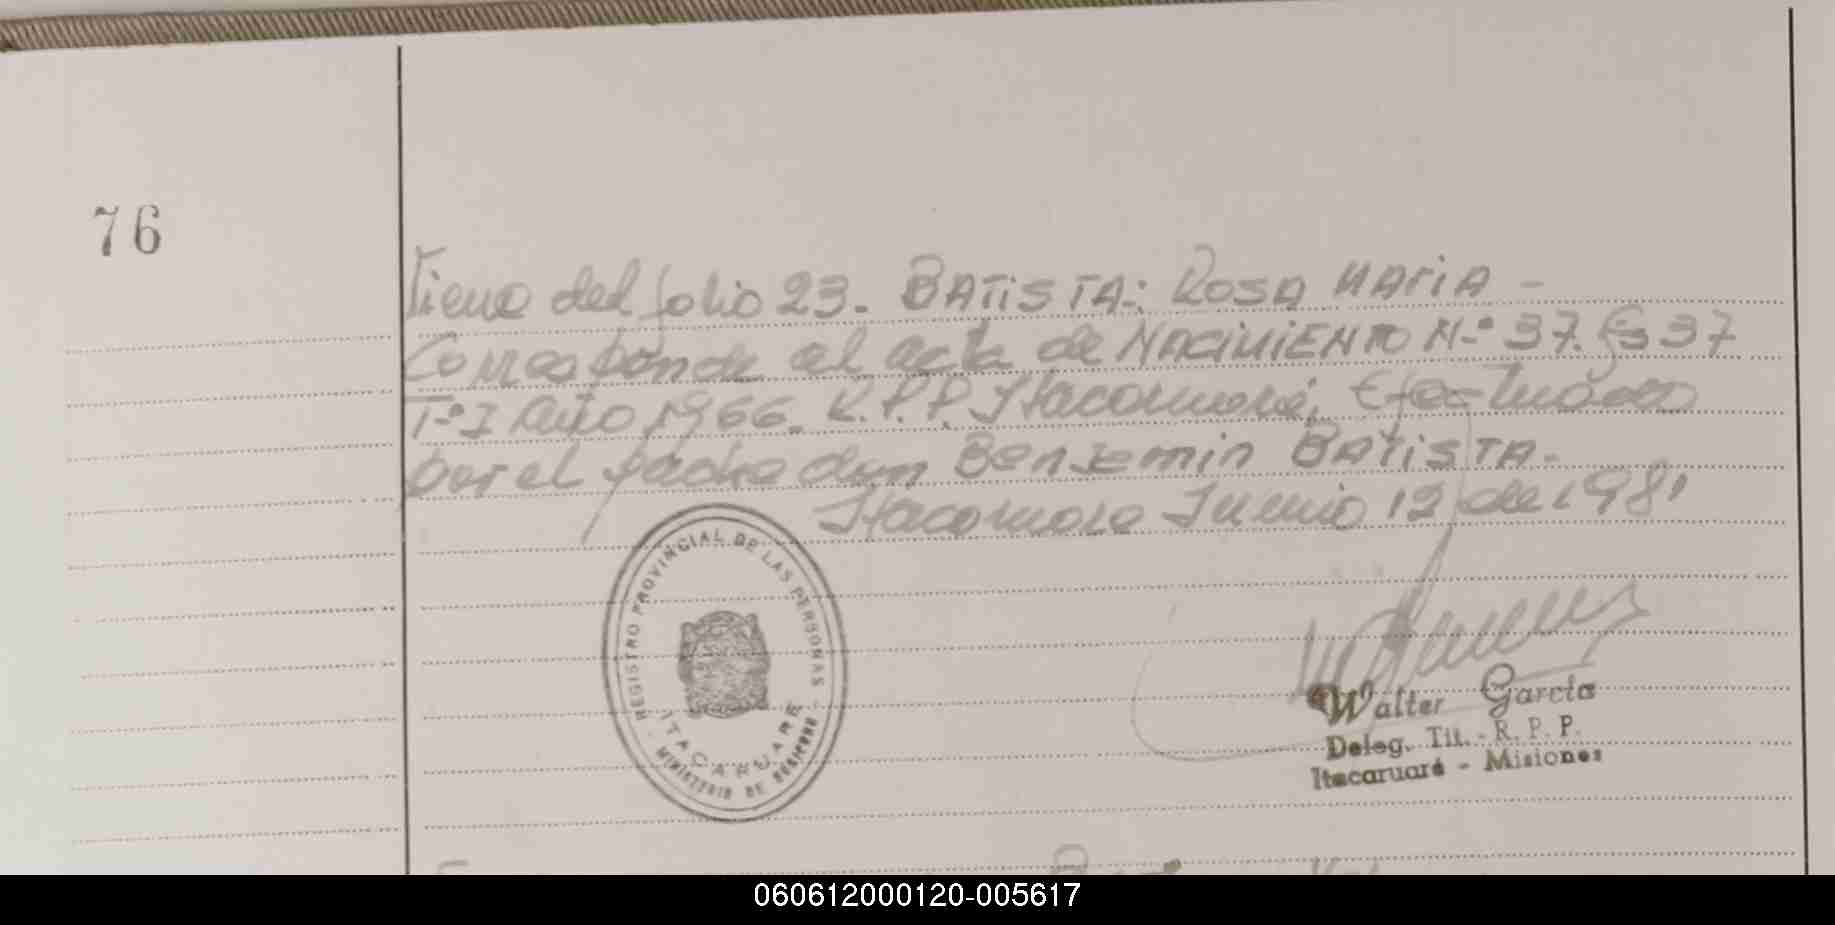 76
Viene del folio 23. BATISTA: ROSA MARIA -
Corresponde al acta de NACIMIENTO N.º 37. Fs 37
Tº I Año 1966. R.P.P. Itacaruaré, Efectuado
por el padre don Benjamin BATISTA.
Itacaruare Junio 12 de 1981
REGISTRO PROVINCIAL DE LAS PERSONAS
ITACARUARE
MINISTERIO DE GOBIERNO
Walter García
Deleg. Tit. - R. P. P.
Itacaruaré - Misiones
060612000120-005617